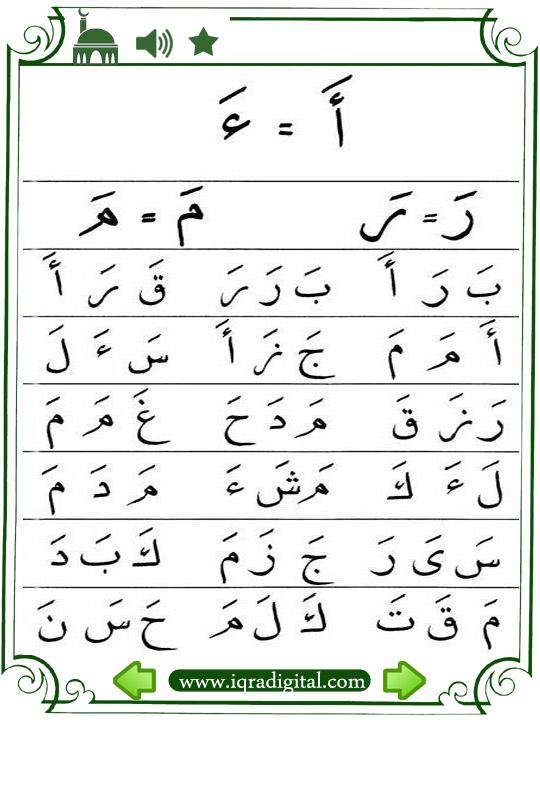 أَ = ءَ
رَ = رَ مَ = مَ
بَ رَ أَ بَ رَ رَ قَ رَ أَ
أَ مَ مَ جَ زَ أَ سَ ءَ لَ
رَ زَ قَ مَ دَ حَ غَ مَ مَ
لَ ءَ كَ مَ شَ ءَ مَ دَ مَ
سَ یَ رَ جَ زَ مَ كَ بَ دَ
مَ قَ تَ كَ لَ مَ حَ سَ نَ
www.iqradigital.com